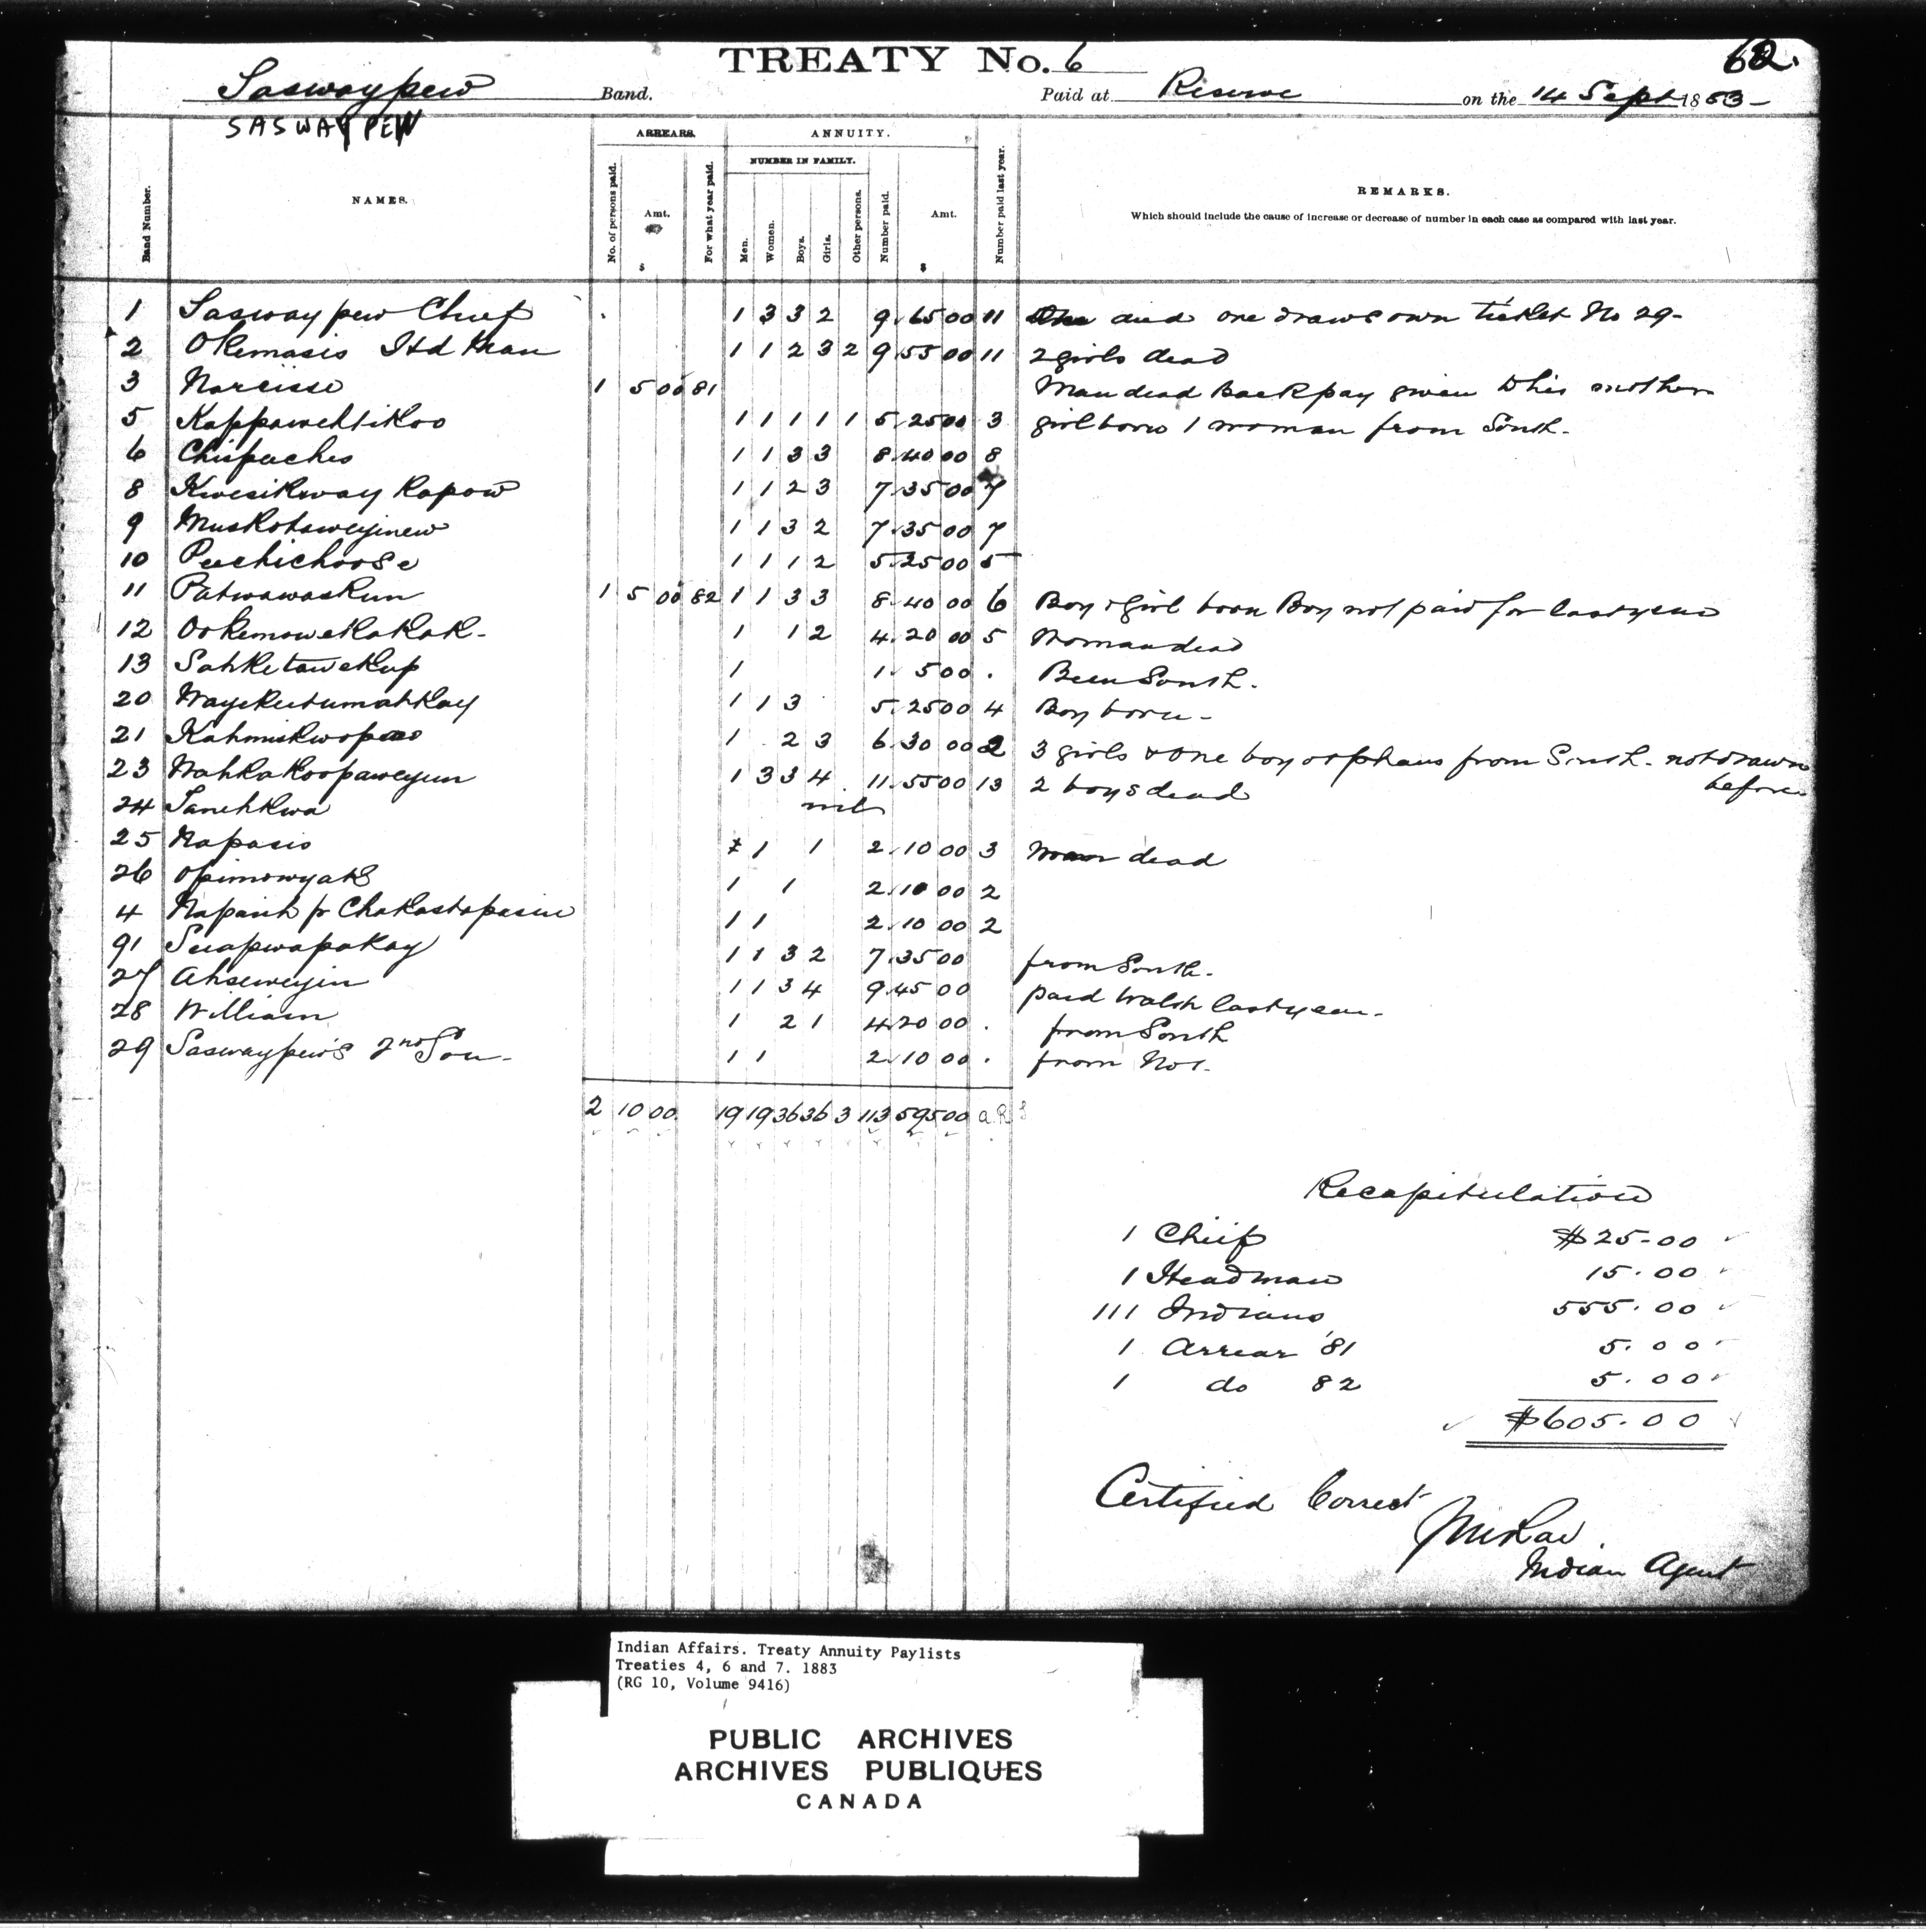 TREATY No. 6
62.
Saswaypew Band. Paid at Reserve on the 14 Sept 1883
SASWAYPEW
ARREARS. ANNUITY.
NUMBER IN FAMILY.
Band Number. NAMES. No. of persons paid. Amt. $ For what year paid. Men. Women. Boys. Girls. Other persons. Number paid. Amt. $ Number paid last year. REMARKS.
Which should include the cause of increase or decrease of number in each case as compared with last year.
1 Saswaypew Chief 1 3 3 2 9 65 00 11 One died one draws own ticket No 29-
2 Okemasis Hd Man 1 1 2 3 2 9 55 00 11 2 girls dead
3 Narcisse 1 5 00 81 Man dead Back pay given to his mother
5 Kappawehtikoo 1 1 1 1 1 5 25 00 3 girl born 1 woman from South.
6 Chispaches 1 1 3 3 8 40 00 8
8 Kwesikway Kapow 1 1 2 3 7 35 00 7
9 Muskotsweyinew 1 1 3 2 7 35 00 7
10 Peechichoose 1 1 1 2 5 25 00 5
11 Patwawaskum 1 5 00 82 1 1 3 3 8 40 00 6 Boy & girl born Boy not paid for last year
12 Ookemowekakak- 1 1 2 4 20 00 5 Woman dead
13 Sahketawekup 1 1 5 00 . Been South.
20 Wayekutumahkay 1 1 3 5 25 00 4 Boy born-
21 Kahmiskwopao 1 2 3 6 30 00 2 3 girls & one boy orphans from South. not drawn before
23 Wahkakoopaweyun 1 3 3 4 11 55 00 13 2 boys dead
24 Sanehkwa nil
25 Napasis 1 1 2 10 00 3 man dead
26 Opimowyahs 1 1 2 10 00 2
4 Napaish fr Chakastapasin 1 1 2 10 00 2
91 Seeapwapakay 1 1 3 2 7 35 00 from South.
27 Ahseweyin 1 1 3 4 9 45 00 paid Walsh last year.
28 William 1 2 1 4 20 00 . from South
29 Saswaypew's 2nd Son- 1 1 2 10 00 . from No 1.
2 10 00 19 19 36 36 3 113 595 00
Recapitulation
1 Chief $25.00
1 Headman 15.00
111 Indians 555.00
1 Arrear '81 5.00
1 do 82 5.00
$605.00
Certified Correct
Indian Agent
Indian Affairs. Treaty Annuity Paylists
Treaties 4, 6 and 7. 1883
(RG 10, Volume 9416)
PUBLIC ARCHIVES
ARCHIVES PUBLIQUES
CANADA